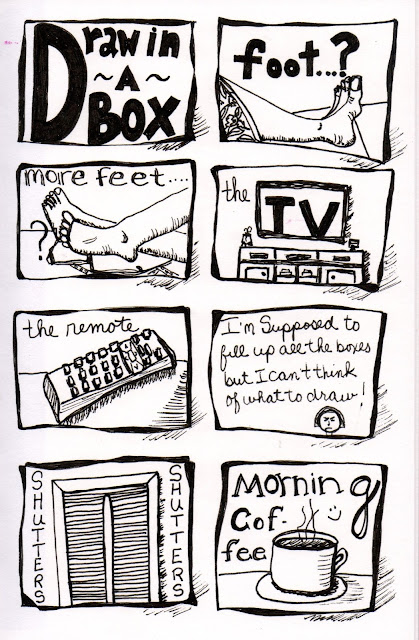 Draw in
~ A ~
BOX
foot...?
more feet....
?
the
TV
the remote
I'm Supposed to
fill up all the boxes
but I can't think
of what to draw!
SHUTTERS
SHUTTERS
Morning
Cof-
fee